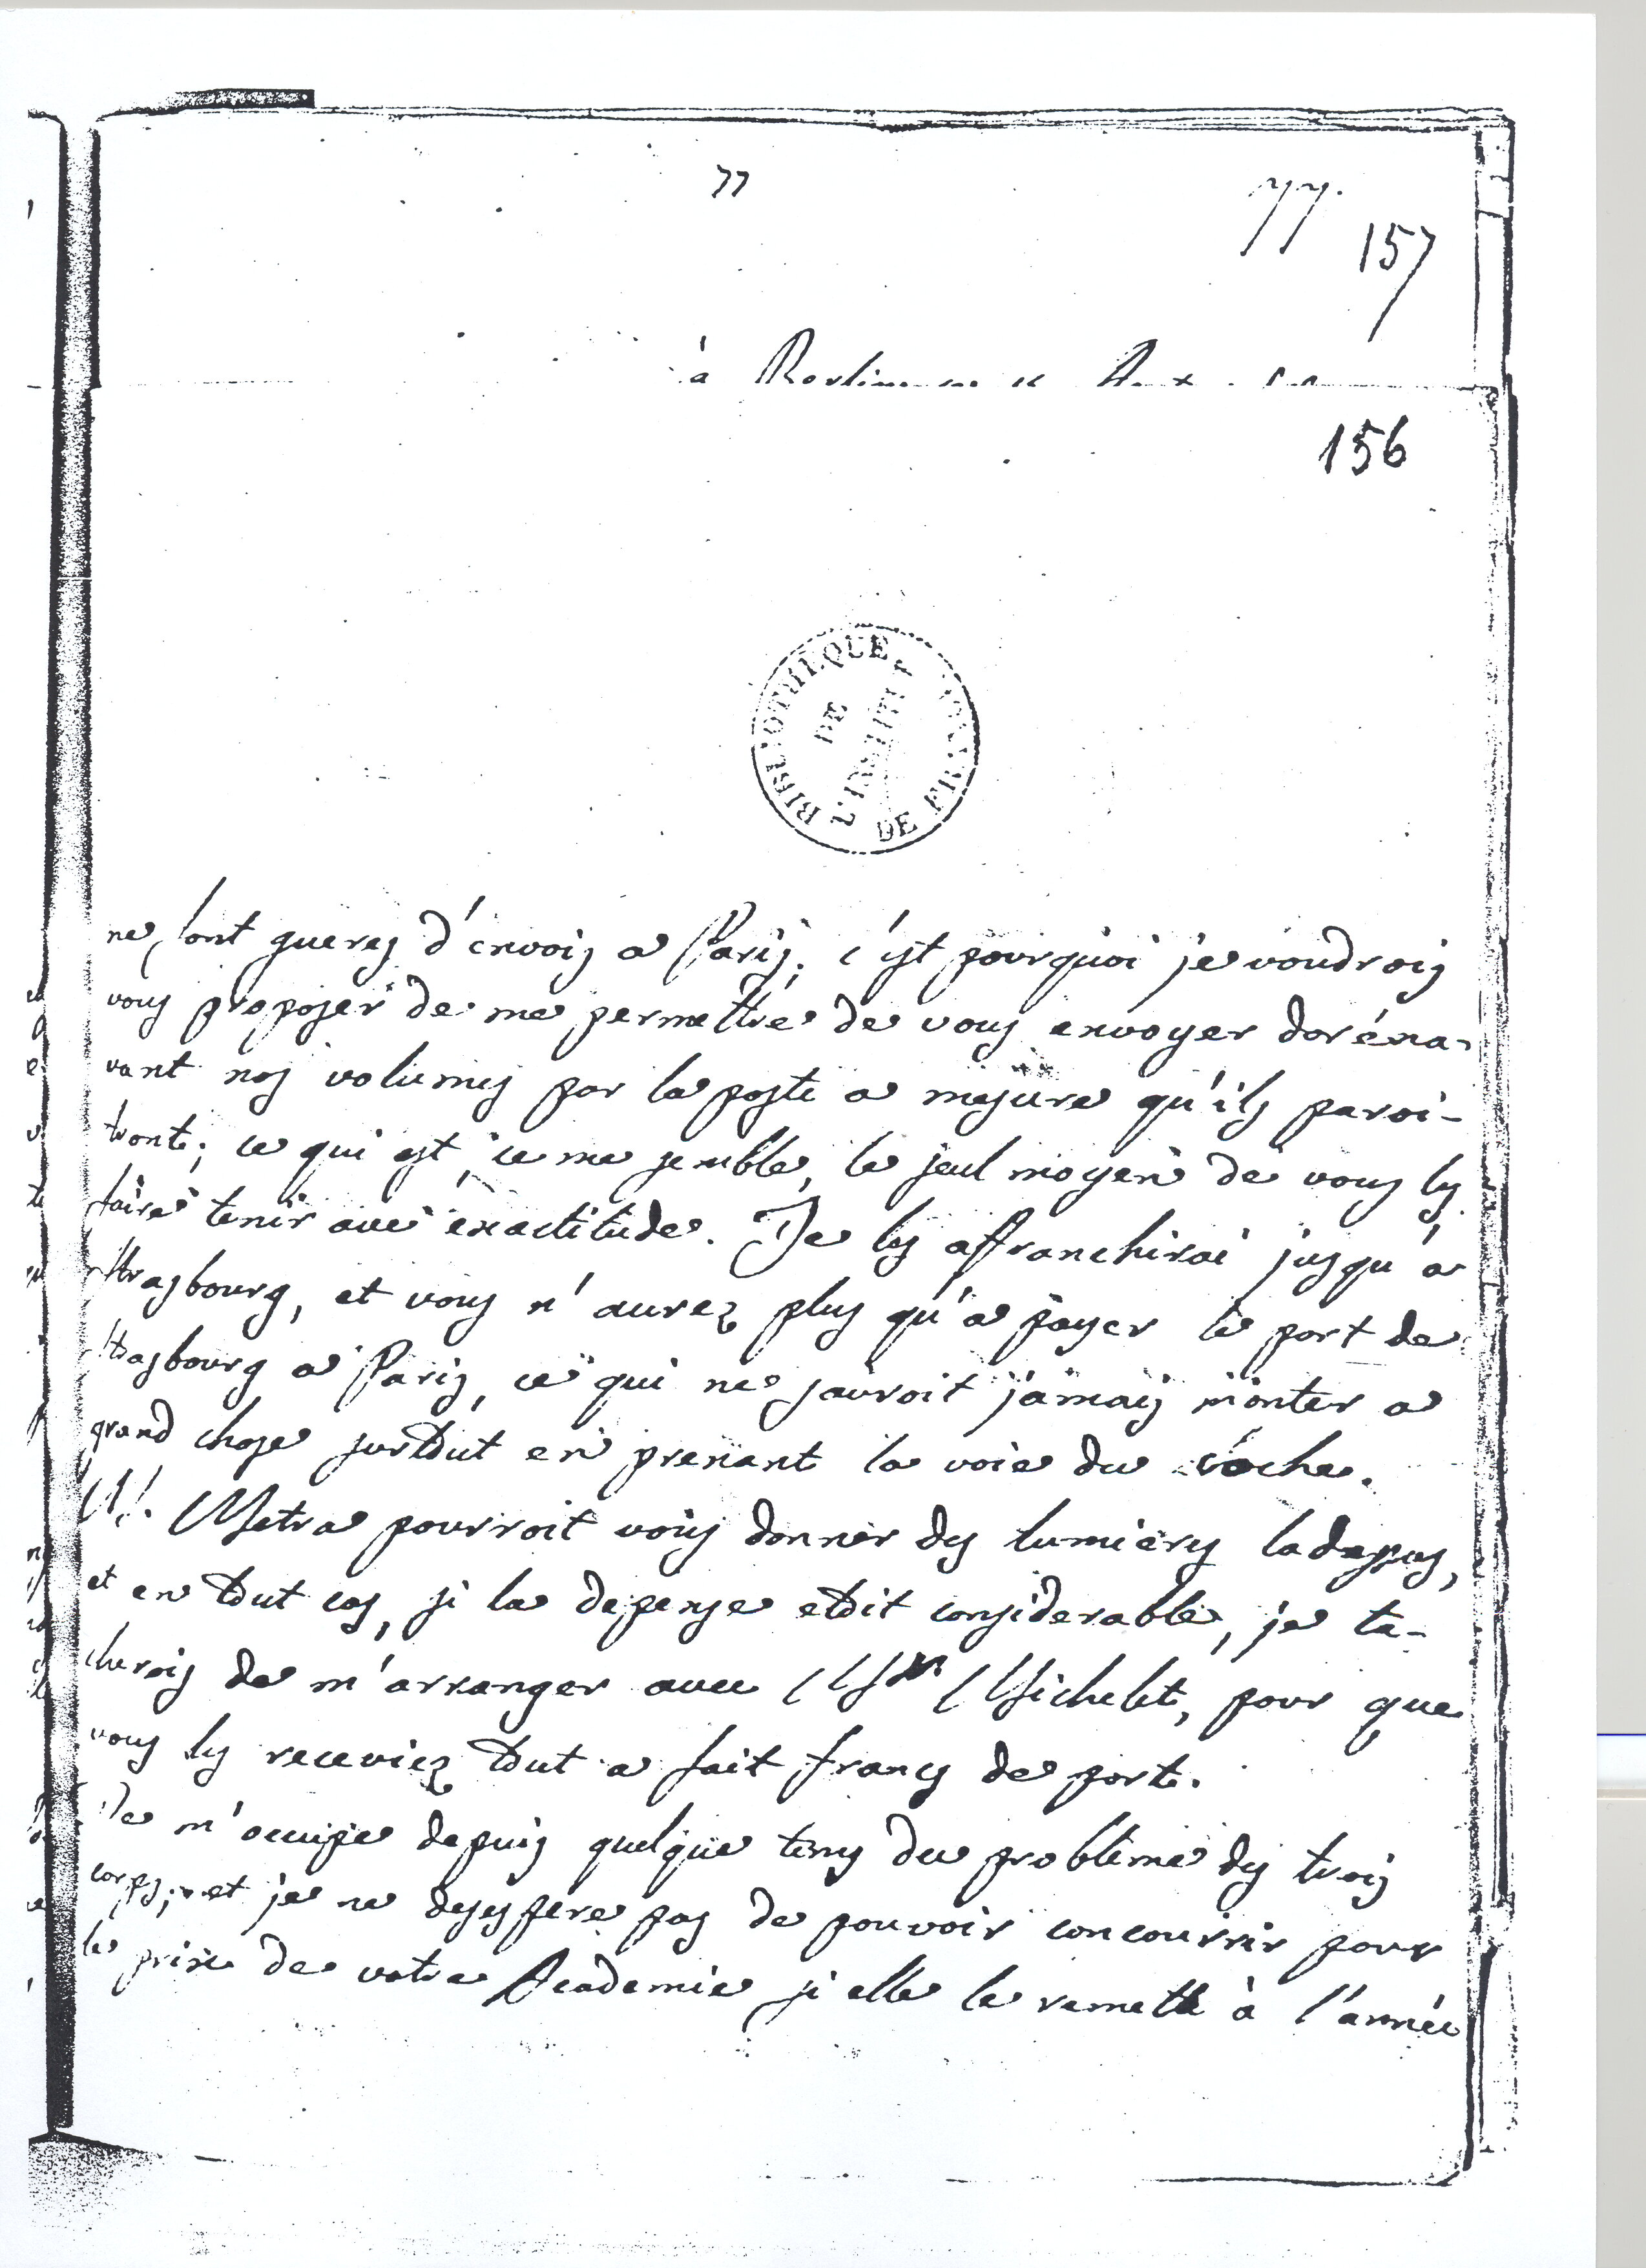 77
77.
157
à Berlin
156
BIBLIOTHEQUE
DE
L'INSTITUT
DE FRANCE
ne font gueres d'envois a Paris; c'est pourquoi je voudrois
vous proposer de me permettre de vous envoyer doréna-
vant nos volumes par la poste a mesure qu'ils paroi-
tront; ce qui est, ce me semble, le seul moyen de vous les
faire tenir avec exactitude. Je les affranchirai jusqu'a
Strasbourg, et vous n'aurez plus qu'a payer le port de
Strasbourg a Paris, ce qui ne sauroit jamais monter a
grand chose surtout en prenant la voie du coche.
M.r Metra pourroit vous donner des lumieres ladessus,
et en tout cas, si la depense etoit considerable, je ta-
cherois de m'arranger avec Mrs Michelet, pour que
vous les receviez tout a fait francs de port.
Je m'occupe depuis quelque tems du probleme des trois
corps; et je ne desespere pas de pouvoir concourrir pour
le prix de votre Academie si elle le remette à l'année